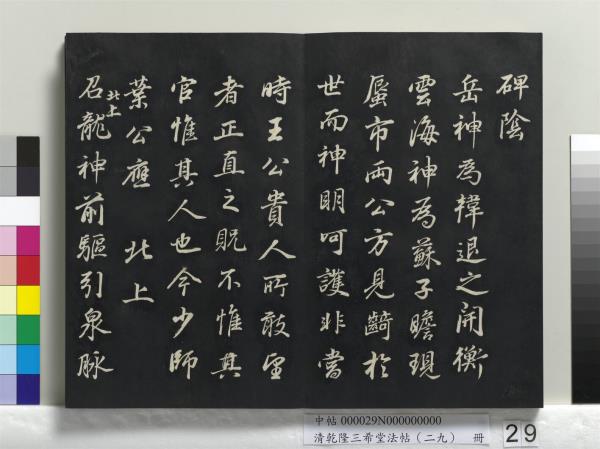 碑陰
岳神為韓退之開衡
雲海神為蘇子瞻現
蜃市兩公方見齮於
世而神明呵護非當
時王公貴人所敢望
者正直之貺不惟其
官惟其人也今少師
葉公應北上
召龍神前驅引泉脉
北土
中帖 000029N000000000
清乾隆三希堂法帖(二九) 冊
29